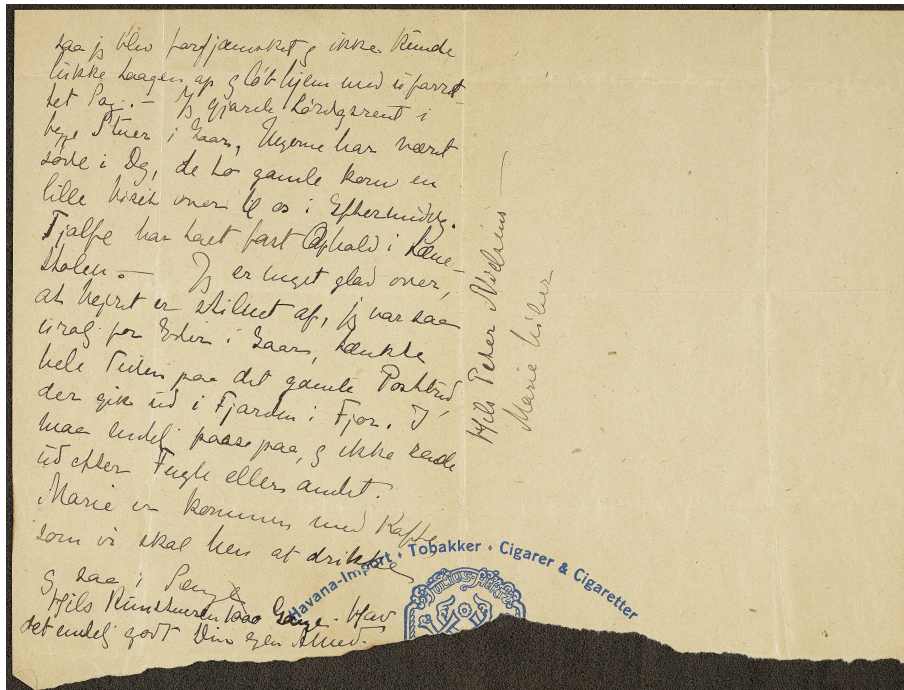 saa jeg blev forfjamsket og ikke kunde
lukke Laagen op og løb hjem med uforret-
tet Sag. - Jeg gjorde Lørdagsrent i
begge Stuer i Gaar, Ungerne har været
søde i Dag, de to gamle kom en
lille Visit over til os i Eftermiddag.
Tjalfe har taget fast Ophold i Læne-
stolen. - Jeg er meget glad over,
at Vejret er stilnet af, jeg var saa
urolig for Eder i Gaar, tænkte
hele Tiden paa det gamle Postbud,
der gik ud i Fjorden i Fjor. I
maa endelig passe paa, og ikke rende
ud efter Fugle eller andet.
Marie er kommen med Kaffe,
som vi skal hen at drikke
og saa i Seng
Hils Kunstneren 1000 Gange. Hav
det endelig godt Din egen Alhed.
Hils Peter Nielsens
Marie hilser
Havana-Import · Tobakker · Cigarer & Cigaretter